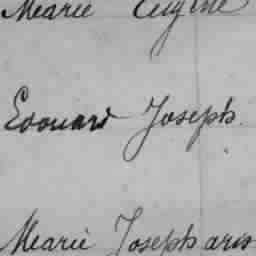 Marie Eugène
Edouard Joseph
Marie Joseph